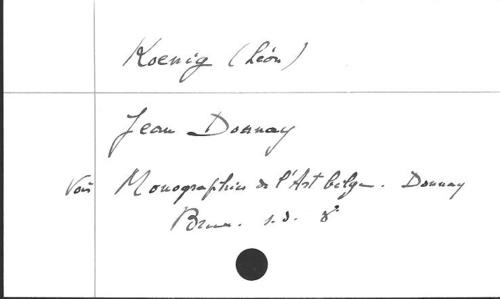 Koenig (Léon)
Jean Donnay
Voir Monographies de l'Art belge. Donnay
Brux. s.d. 8°